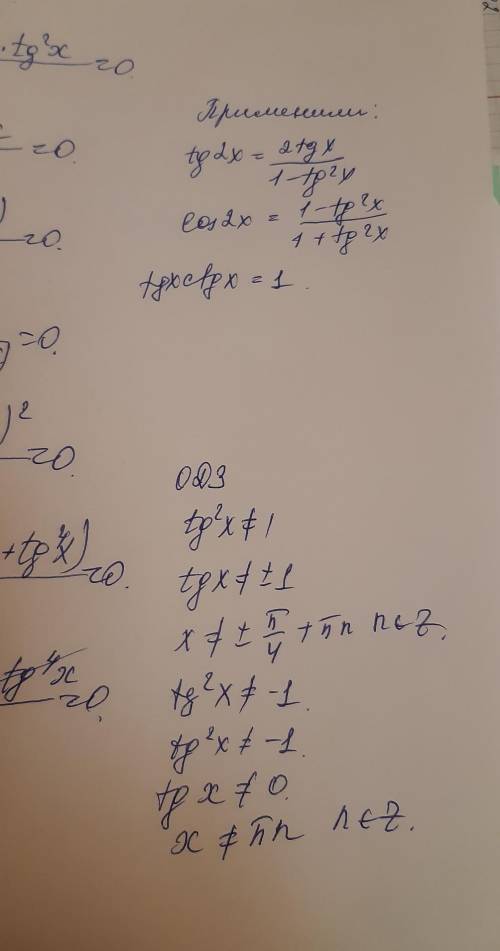 · tg²x =0.
=0.
) =0.
=0.
)² =0.
+tg²x) =0.
tg⁴x =0.
Применили:
tg2x = 2tgx / 1-tg²x
cos2x = 1-tg²x / 1+tg²x
tgxctgx = 1.
ОДЗ
tg²x ≠ 1
tgx ≠ ±1
x ≠ ± π/4 + πn n∈Z.
tg²x ≠ -1.
tg²x ≠ -1.
tg x ≠ 0.
x ≠ πn n∈Z.